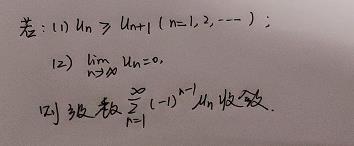 若:(1) Un ≥ Un+1 (n=1,2,---);
(2) lim n→∞ Un=0,
则级数 ∞ Σ n=1 (-1)^n-1 Un 收敛.